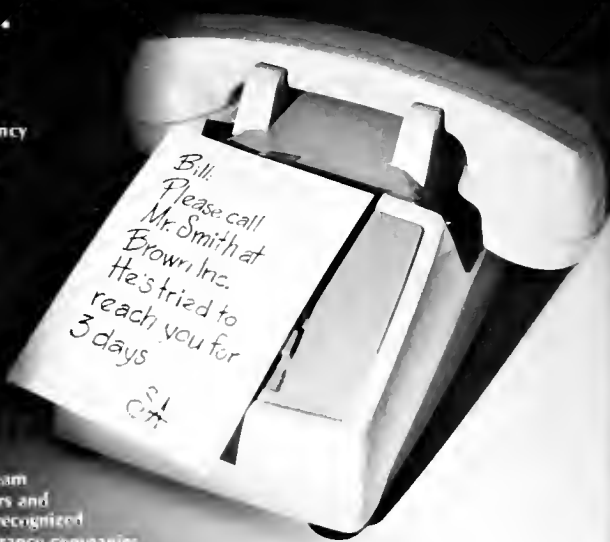 ncy
Bill:
Please call
Mr. Smith at
Brown Inc.
He's tried to
reach you for
3 days
am
rs and
recognized
rancy companies